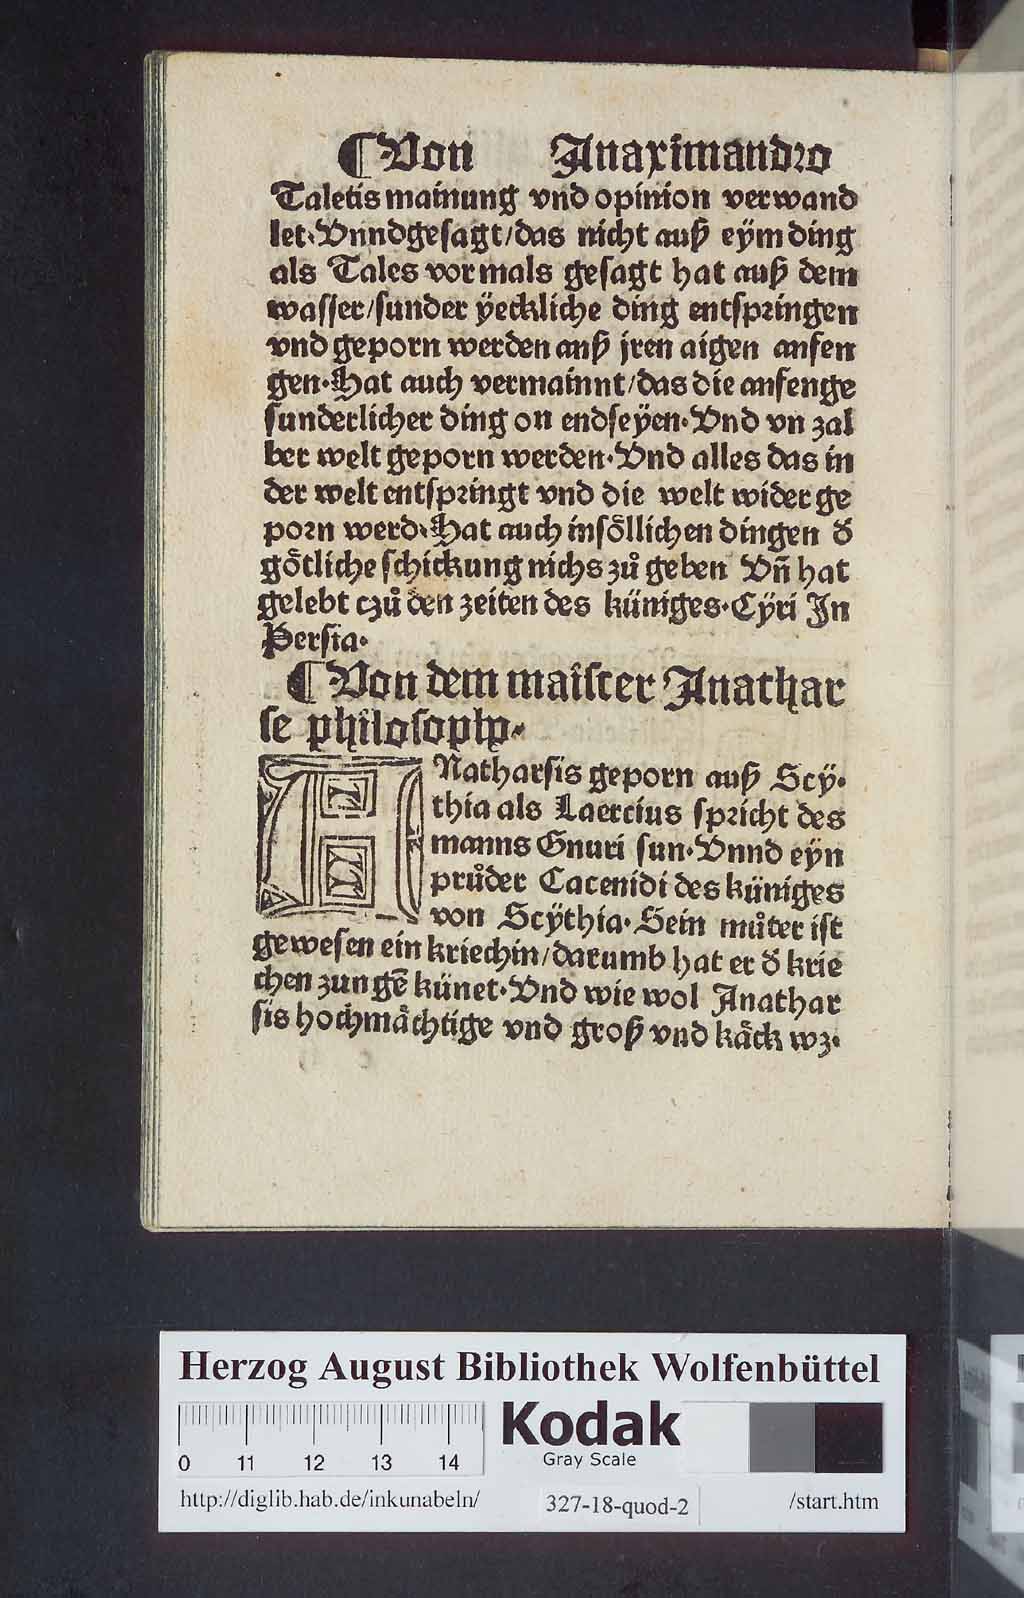 ¶Von Anaximandro
Taletis mainung vnd opinion verwand
let·Vnndgesagt/das nicht auß eÿm ding
als Tales vormals gesagt hat auß dem
wasser/sunder ÿeckliche ding entspringen
vnd geporn werden auß jren aigen anfen
gen·Hat auch vermainnt/das die anfenge
sunderlicher ding on endseÿen·Vnd vn zal
ber welt geporn werden·Vnd alles das in
der welt entspringt vnd die welt wider ge
porn werd·Hat auch insoͤllichen dingen đ
goͤtliche schickung nichs zuͦ geben Vn̄ hat
gelebt czuͦ den zeiten des küniges·Cÿri In
Persia·
¶Von dem maister Anathar
se philosopho·
ANatharsis geporn auß Scÿ·
thia als Laercius spricht des
manns Gnuri sun·Vnnd eÿn
pruͦder Cacenidi des küniges
von Scÿthia·Sein muͦter ist
gewesen ein kriechin/darumb hat er đ krie
chen zungē künet·Vnd wie wol Anathar
sis hochmaͤchtige vnd groß vnd kaͤck wz·
Herzog August Bibliothek Wolfenbüttel
0 11 12 13 14
Kodak
Gray Scale
http://diglib.hab.de/inkunabeln/ 327-18-quod-2 /start.htm